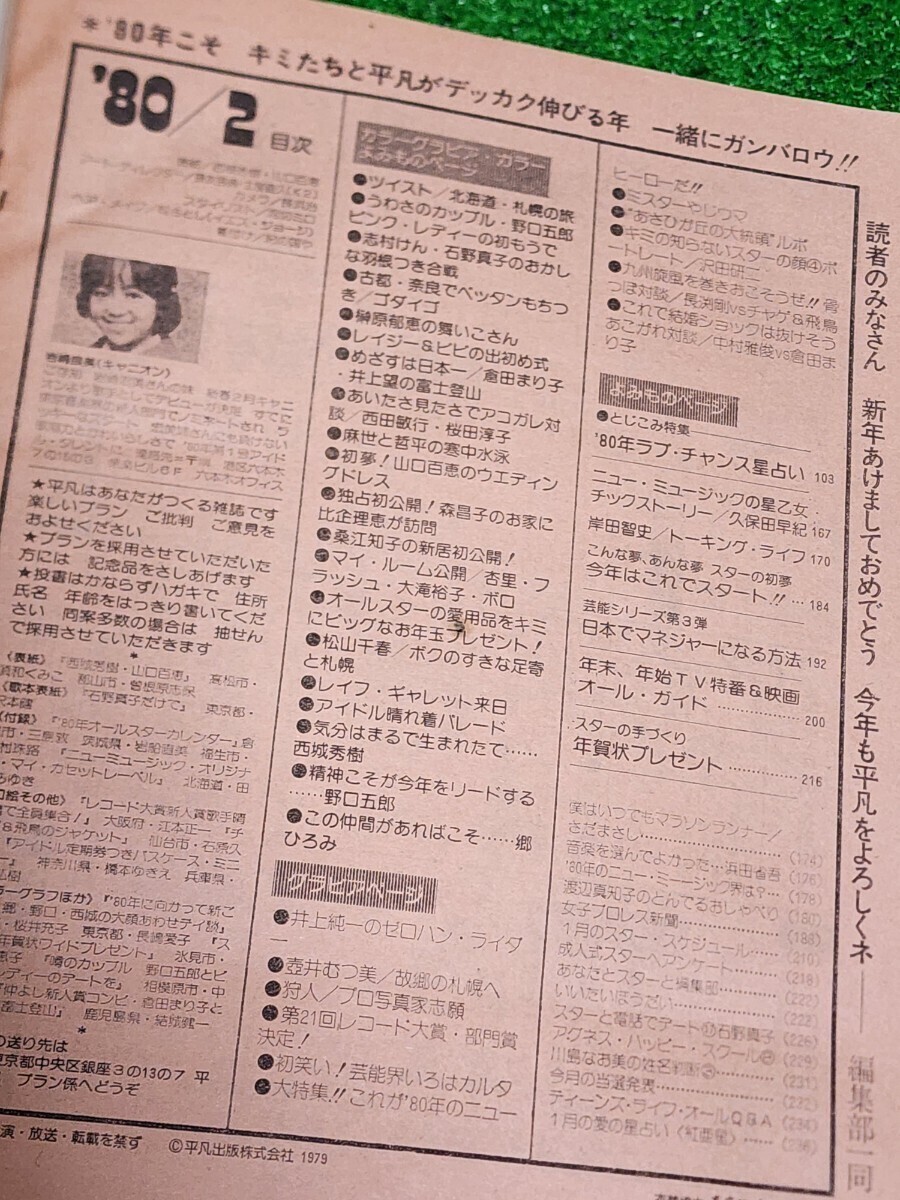 *'80年こそ キミたちと平凡がデッカク伸びる年 一緒にガンバロウ!!
'80/2 目次
岩崎良美(キャニオン)
★平凡はあなたがつくる雑誌です
楽しいプラン ご批判 ご意見を
およせください
★プランを採用させていただいた
方には 記念品をさしあげます
★投書はかならずハガキで 住所
氏名 年齢をはっきり書いてくだ
さい 同案多数の場合は 抽せん
で採用させていただきます
*
〈表紙〉『西城秀樹・山口百恵』 高松市・
〈歌本表紙〉『石野真子だけで』 東京都・
〈付録〉『'80年オールスターカレンダー』倉
『ニューミュージック・オリジナ
・マイ・カセットレーベル』 北海道・田
口絵その他〉『レコード大賞新人賞歌手晴
着で全員集合!』 大阪府・江本正一 『チ
&飛鳥のジャケット』 仙台市・石原久
『アイドル定期券つきパスケース・ミニ
神奈川県・橋本ゆきえ 兵庫県・
ラーグラフほか〉『'80年に向かって新ご
郷・野口・西城の大顔あわせデイ談』
・桜井充子 東京都・長崎愛子 『ス
年賀状ワイドプレゼント』 氷見市・
恵子 『噂のカップル 野口五郎とピ
ンディーのデートを』 相模原市・中
『仲よし新人賞コンビ・倉田まり子と
富士登山』 鹿児島県・結城健一
*
の送り先は
東京都中央区銀座3の13の7 平
プラン係へどうぞ
カラーグラビア・カラー
よみものページ
●ツイスト/北海道・札幌の旅
●うわさのカップル・野口五郎
ピンク・レディーの初もうで
●志村けん・石野真子のおかし
な羽根つき合戦
●古都・奈良でペッタンもちつ
き/ゴダイゴ
●榊原郁恵の舞いこさん
●レイジー&ビビの出初め式
●めざすは日本一/倉田まり子
・井上望の富士登山
●あいたさ見たさでアコガレ対
談/西田敏行・桜田淳子
●麻世と哲平の寒中水泳
●初夢!山口百恵のウエディン
グドレス
●独占初公開!森昌子のお家に
比企理恵が訪問
●桑江知子の新居初公開!
●マイ・ルーム公開/杏里・フ
ラッシュ・大滝裕子・ボロ
●オールスターの愛用品をキミ
にビッグなお年玉プレゼント!
●松山千春/ボクのすきな足寄
と札幌
●レイフ・ギャレット来日
●アイドル晴れ着パレード
●気分はまるで生まれたて……
西城秀樹
●精神こそが今年をリードする
……野口五郎
●この仲間があればこそ……郷
ひろみ
グラビアページ
●井上純一のゼロハン・ライダ
ー
●壺井むつ美/故郷の札幌へ
●狩人/プロ写真家志願
●第21回レコード大賞・部門賞
決定!
●初笑い!芸能界いろはカルタ
●大特集!!これが'80年のニュー
ヒーローだ!!
●ミスターやじウマ
●"あさひが丘の大統領"ルポ
●キミの知らないスターの顔④ポ
ートレート/沢田研二
●九州旋風を巻きおこそうぜ!!骨
つぽ対談/長渕剛vsチャゲ&飛鳥
●これで結婚ショックは抜けそう
あこがれ対談/中村雅俊vs倉田ま
り子
よみものページ
●とじこみ特集
'80年ラブ・チャンス星占い 103
ニュー・ミュージックの星乙女
チックストーリー/久保田早紀 167
岸田智史/トーキング・ライフ 170
こんな夢、あんな夢 スターの初夢
今年はこれでスタート!! … 184
芸能シリーズ第3弾
日本でマネジャーになる方法 192
年末、年始TV特番&映画
オール・ガイド 200
スターの手づくり
年賀状プレゼント 216
僕はいつでもマラソンランナー/
さだまさし (174)
音楽を選んでよかった…浜田省吾 (176)
'80年のニュー・ミュージック界は?… (178)
渡辺真知子のとんでるおしゃべり (180)
女子プロレス新聞 (188)
1月のスター・スケジュール (210)
成人式スターへアンケート (218)
あなたとスターと編集部 (222)
いいたいほうだい (222)
スターと電話でデート 石野真子 (226)
アグネス・ハッピー・スクール (229)
川島なお美の姓名判断 (231)
今月の当選発表 (232)
ティーンズ・ライフ・オールQ&A (234)
1月の愛の星占い〈紅亜里〉 (236)
読者のみなさん 新年あけましておめでとう 今年も平凡をよろしくネ―― 編集部一同
演・放送・転載を禁ず ©平凡出版株式会社 1979